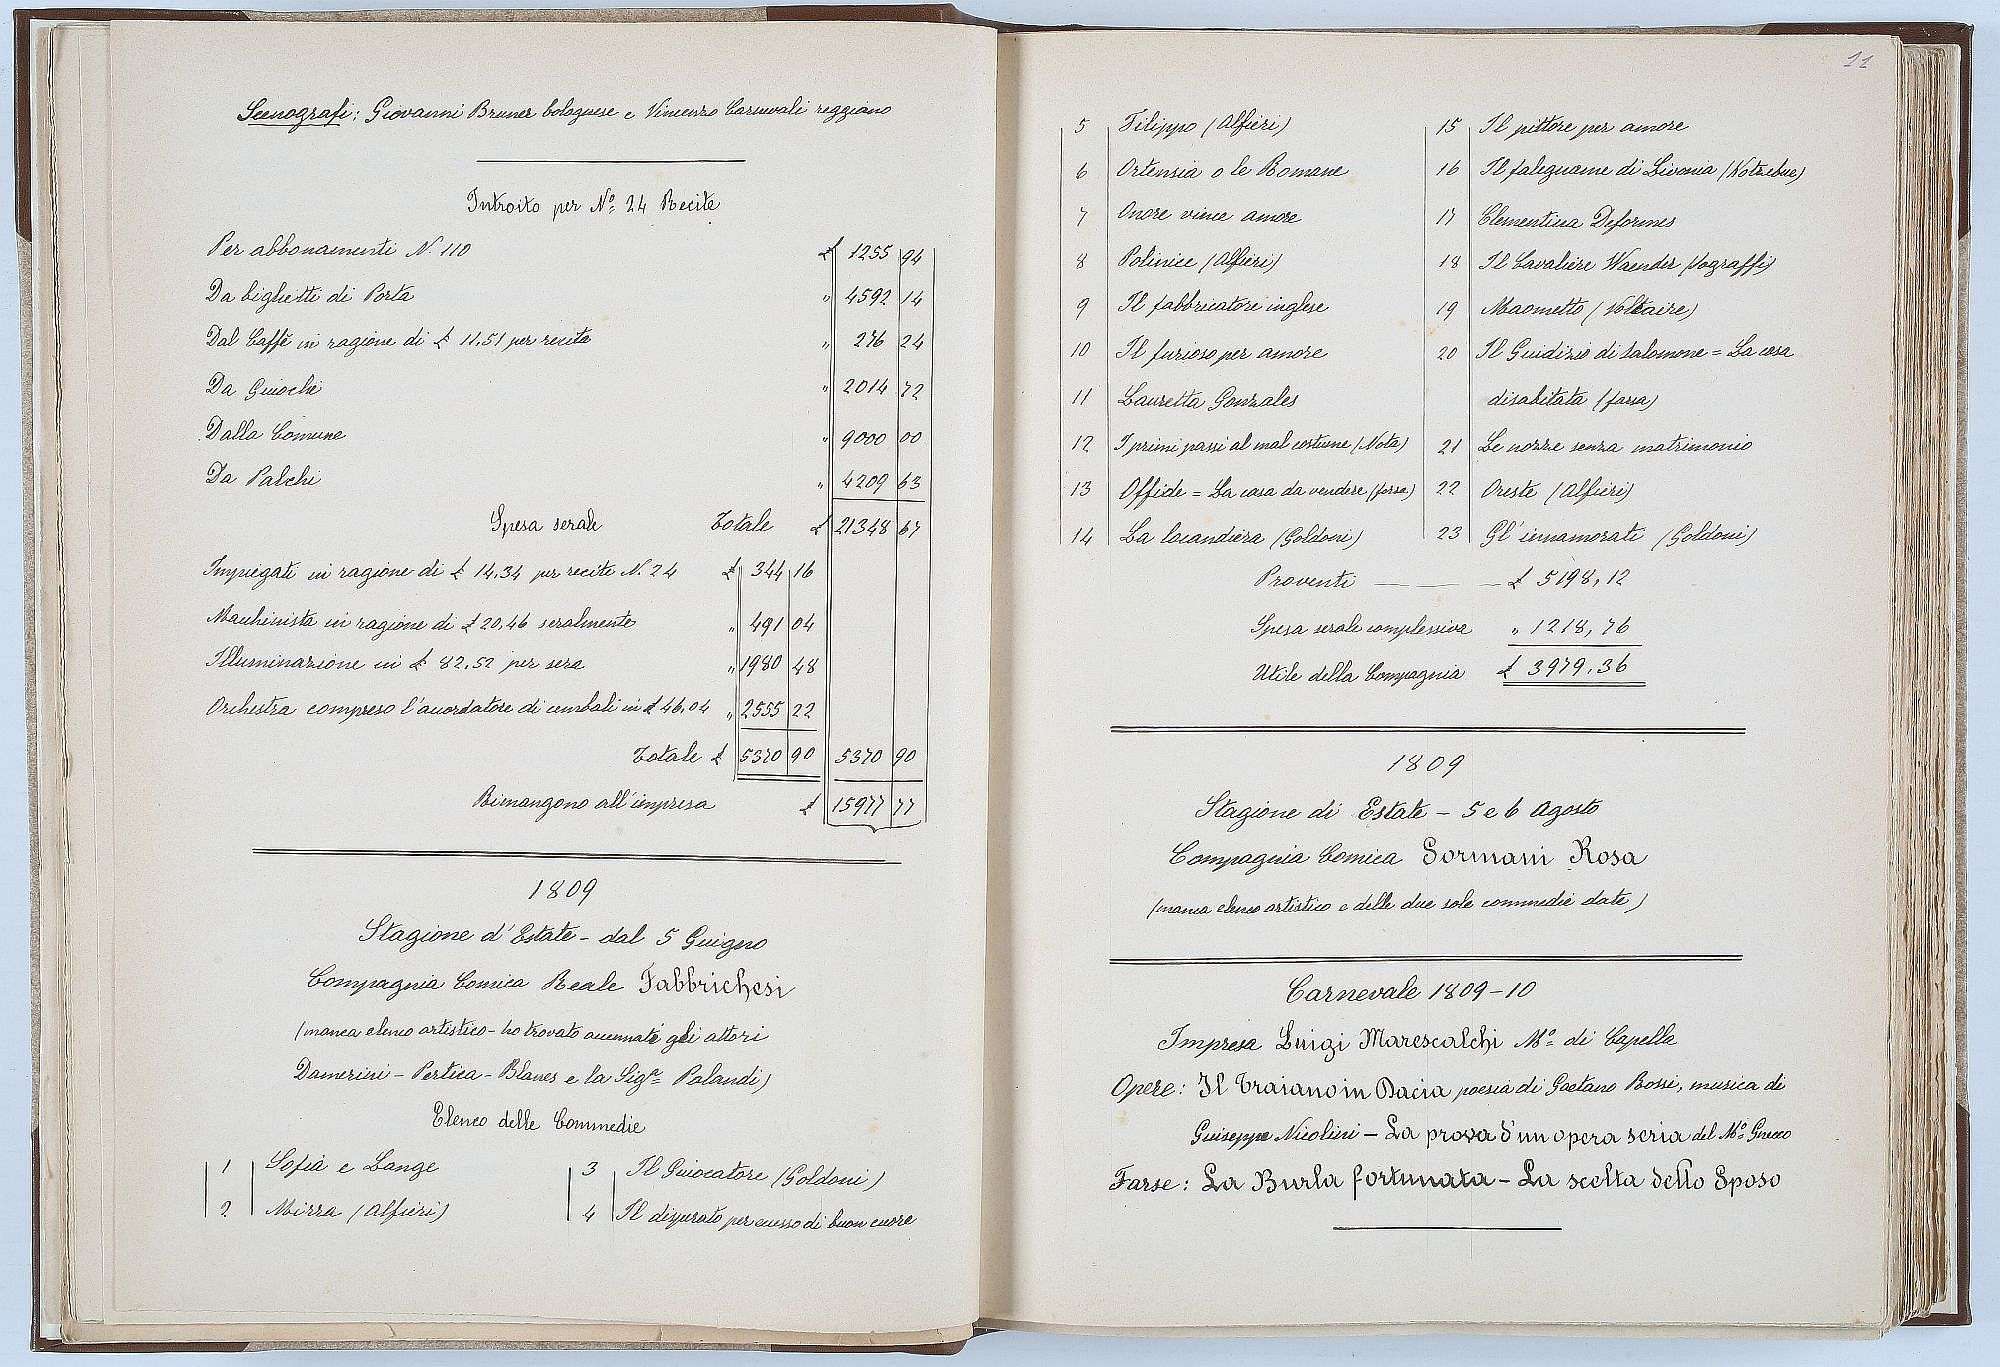 Scenografi: Giovanni Bruner bolognese e Vincenzo Carnevali reggiano
Introito per Nº 24 Recite
Per abbonamenti N. 110 £ 1255 94
Da biglietti di Porta " 4592 14
Dal Caffè in ragione di £ 11.51 per recita " 276 24
Da Giuochi " 2014 72
Dalla Comune " 9000 00
Da Palchi " 4209 63
Spesa serale Totale £ 21348 67
Impiegati in ragione di £ 14.34 per recite N. 24 £ 344 16
Macchinista in ragione di £ 20.46 seralmente " 491 04
Illuminazione in £ 82.52 per sera " 1980 48
Orchestra compreso l'accordatore di cembali in £ 46.04 " 2555 22
Totale £ 5370 90 5370 90
Rimangono all'impresa £ 15977 77
1809
Stagione d'Estate - dal 5 Giugno
Compagnia Comica Reale Fabbrichesi
(manca elenco artistico - ho trovato accennati gli attori
Damerini - Pertica - Blanes e la Sigª Palandi)
Elenco delle Commedie
1 Sofia e Lange
2 Mirra (Alfieri)
3 Il Giuocatore (Goldoni)
4 Il disperato per eccesso di buon cuore
11
5 Filippo (Alfieri)
6 Ortensia o le Romane
7 Onore vince amore
8 Polinice (Alfieri)
9 Il fabbricatore inglese
10 Il furioso per amore
11 Lauretta Gonzales
12 I primi passi al mal costume (Nota)
13 Offide = La casa da vendere (farsa)
14 La locandiera (Goldoni)
15 Il pittore per amore
16 Il falegname di Livonia (Kotzebue)
17 Clementina Deformes
18 Il Cavaliere Waender (Sograffi)
19 Maometto (Voltaire)
20 Il Giudizio di Salomone = La casa
disabitata (farsa)
21 Le nozze senza matrimonio
22 Oreste (Alfieri)
23 Gl'innamorati (Goldoni)
Proventi — — — £ 5198,12
Spesa serale complessiva " 1218,76
Utile della Compagnia £ 3979.36
1809
Stagione di Estate - 5 e 6 Agosto
Compagnia Comica Sormani Rosa
(manca elenco artistico e delle due sole commedie date)
Carnevale 1809-10
Impresa Luigi Marescalchi Mº di Capella
Opere: Il Traiano in Dacia poesia di Gaetano Rossi, musica di
Giuseppe Nicolini - La prova d'un opera seria del Mº Gnecco
Farse: La Burla fortunata - La scelta dello Sposo